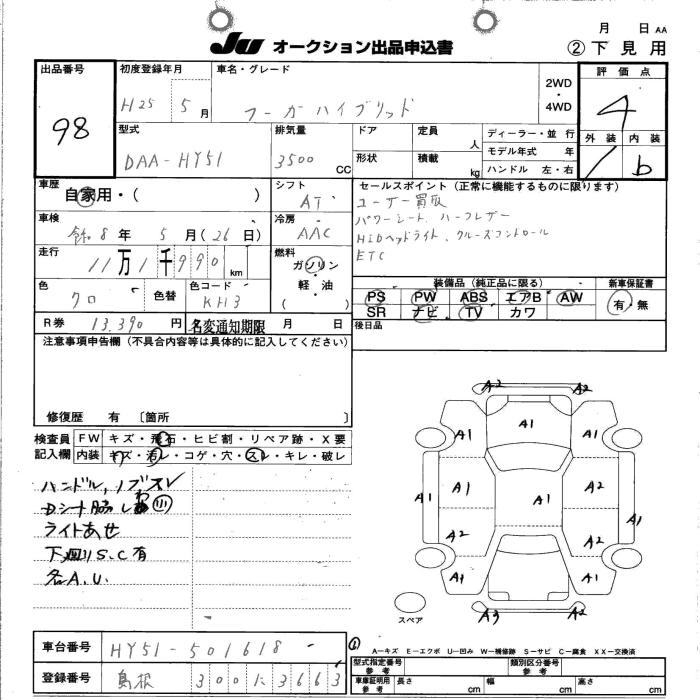 Ju オークション出品申込書
月 日 AA
② 下 見 用
出品番号 98
初度登録年月 H25 5 月
車名・グレード フーガハイブリッド
2WD ・ 4WD
評 価 点 4
外 装 1 内 装 b
型式 DAA-HY51
排気量 3500 CC
ドア
定員 人
形状
積載 kg
ディーラー・並 行
モデル年式 年
ハンドル 左・右
車歴 自家用・( )
シフト AT
車検 令和 8 年 5 月(26 日)
冷房 AAC
走行 11万1千990 km
燃料 ガソリン ・ 軽・油 ( )
色 クロ
色替
色コード KH3
R券 13,390 円
名変通知期限 月 日
セールスポイント(正常に機能するものに限ります)
ユーザー買取
パワーシート、ハーフレザー
HIDヘッドライト、クルーズコントロール
ETC
装備品(純正品に限る)
PS PW ABS エアB AW
SR ナビ TV カワ
新車保証書
有・無
後日品
注意事項申告欄(不具合内容等は具体的に記入してください)
修復歴 有 〔箇所 〕
検査員
記入欄
FW キズ・飛石・ヒビ割・リペア跡・X要
内装 キズ・汚レ・コゲ・穴・スレ・キレ・破レ
ハンドル、ノブスレ
Dシート脇
ライトあせ
下廻りS.C有
各A.U.
A2 A2
A1 A1 A1
A1 A1 A1 A2 A1
A2 A2
A1 A1 A1
A3 A2
スペア
A-キズ E-エクボ U-凹み W-補修跡 S-サビ C-腐食 XX-交換済
車台番号 HY51-501618
登録番号 島根 300 に 3663
型式指定番号 参 考
類別区分番号 参 考
車庫証明用 参 考
長さ cm
幅 cm
高さ cm